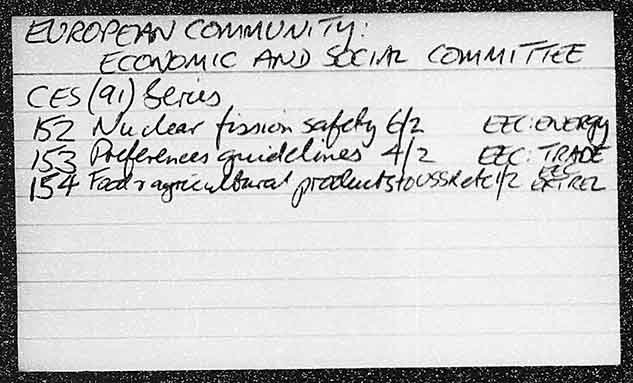 EUROPEAN COMMUNITY:
ECONOMIC AND SOCIAL COMMITTEE
CES (91) Series
152 Nuclear fission safety 6/2 EEC: ENERGY
153 Preferences guidelines 4/2 EEC: TRADE
154 Food & agricultural products to USSR etc 1/2 EEC EXTREL